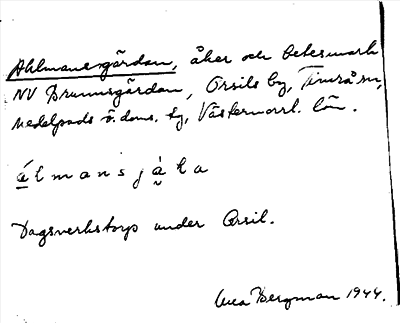 Ahlmansgärdan, åker och betesmark
NV Brunnsgärdan, Orsils by, Timrå sn,
Medelpads ö. doms. tg, Västernorrl. län.
á l m a n s j à ḷa
Dagsverkstorp under Orsil.
Bergman 1944.